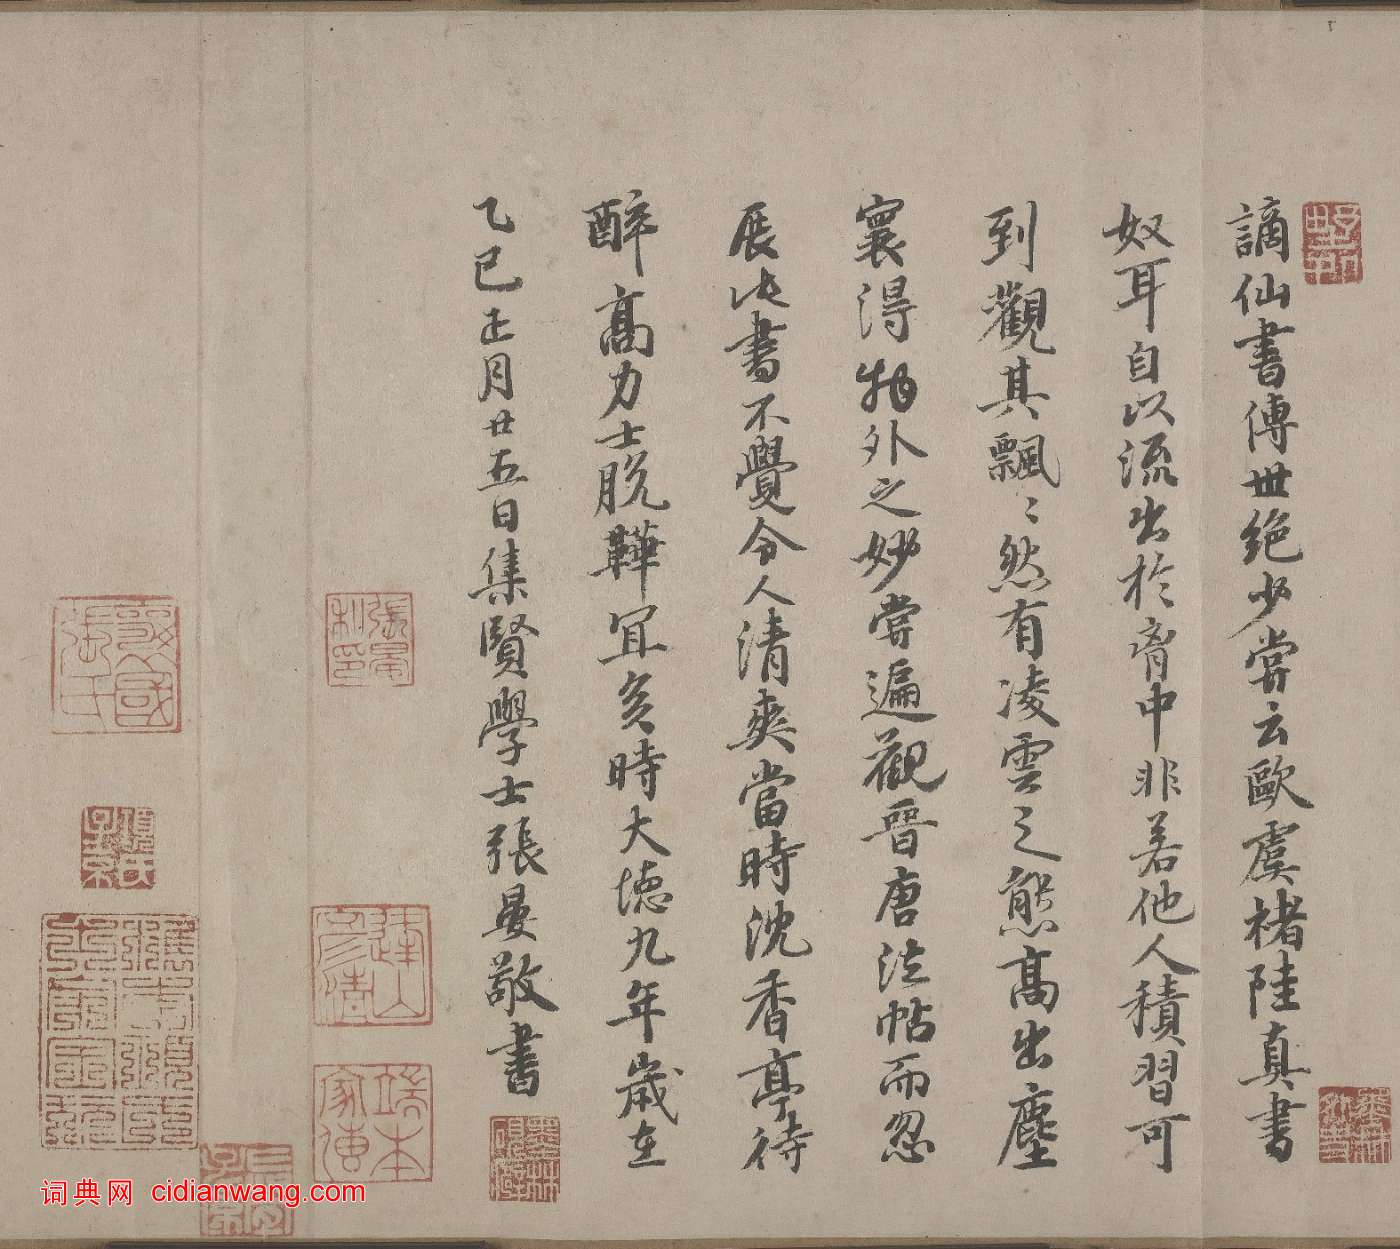 謫仙書傳世絶少嘗云歐虞褚陸真書
奴耳自以流出於胷中非若他人積習可
到觀其飄〻然有凌雲之態高出塵
寰得物外之妙嘗遍觀晉唐法帖而忽
展此書不覺令人清爽當時沈香亭待
醉高力士脱鞾冝亥時大徳九年歲在
乙巳正月廿五日集賢學士張晏敬書
張晏
私印
襄國
張氏
端本
家傳
項氏
子京
墨林
硯癖
词典网 cidianwang.com